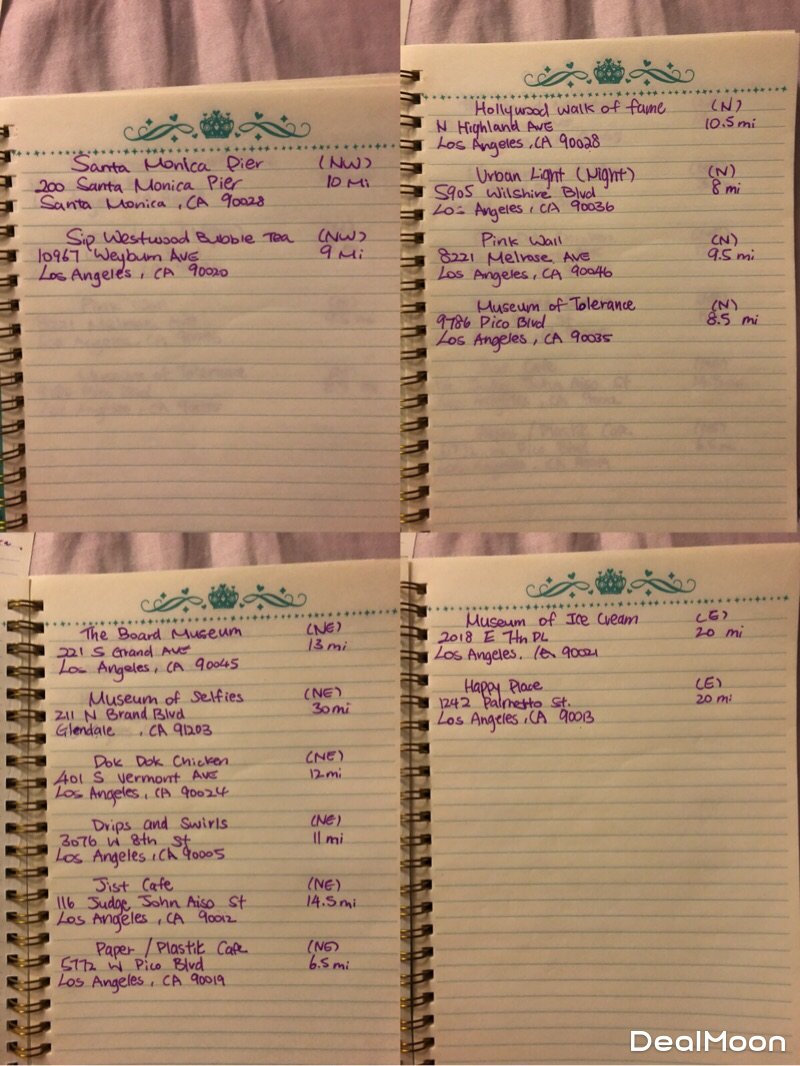 Santa Monica Pier (NW)
200 Santa Monica Pier 10 Mi
Santa Monica, CA 90028
Sip Westwood Bubble Tea (NW)
10967 Weyburn AVE 9 Mi
Los Angeles, CA 90020
Hollywood Walk of fame (N)
N Highland AVE 10.5 mi
Los Angeles, CA 90028
Urban Light (Night) (N)
5905 Wilshire Blvd 8 mi
Los Angeles, CA 90036
Pink Wall (N)
8221 Melrose AVE 9.5 mi
Los Angeles, CA 90046
Museum of Tolerance (N)
9786 Pico Blvd 8.5 mi
Los Angeles, CA 90035
The Board Museum (NE)
221 S Grand AVE 13 mi
Los Angeles, CA 90045
Museum of Selfies (NE)
211 N Brand Blvd 30 mi
Glendale, CA 91203
Dok Dok Chicken (NE)
401 S Vermont AVE 12 mi
Los Angeles, CA 90024
Drips and Swirls (NE)
3076 W 8th St 11 mi
Los Angeles, CA 90005
Jist Cafe (NE)
116 Judge John Aiso St 14.5 mi
Los Angeles, CA 90012
Paper / Plastik Cafe (NE)
5772 W Pico Blvd 6.5 mi
Los Angeles, CA 90019
Museum of Ice Cream (E)
2018 E 7th PL 20 mi
Los Angeles, CA 90021
Happy Place (E)
1242 Palmetto St. 20 mi
Los Angeles, CA 90013
DealMoon